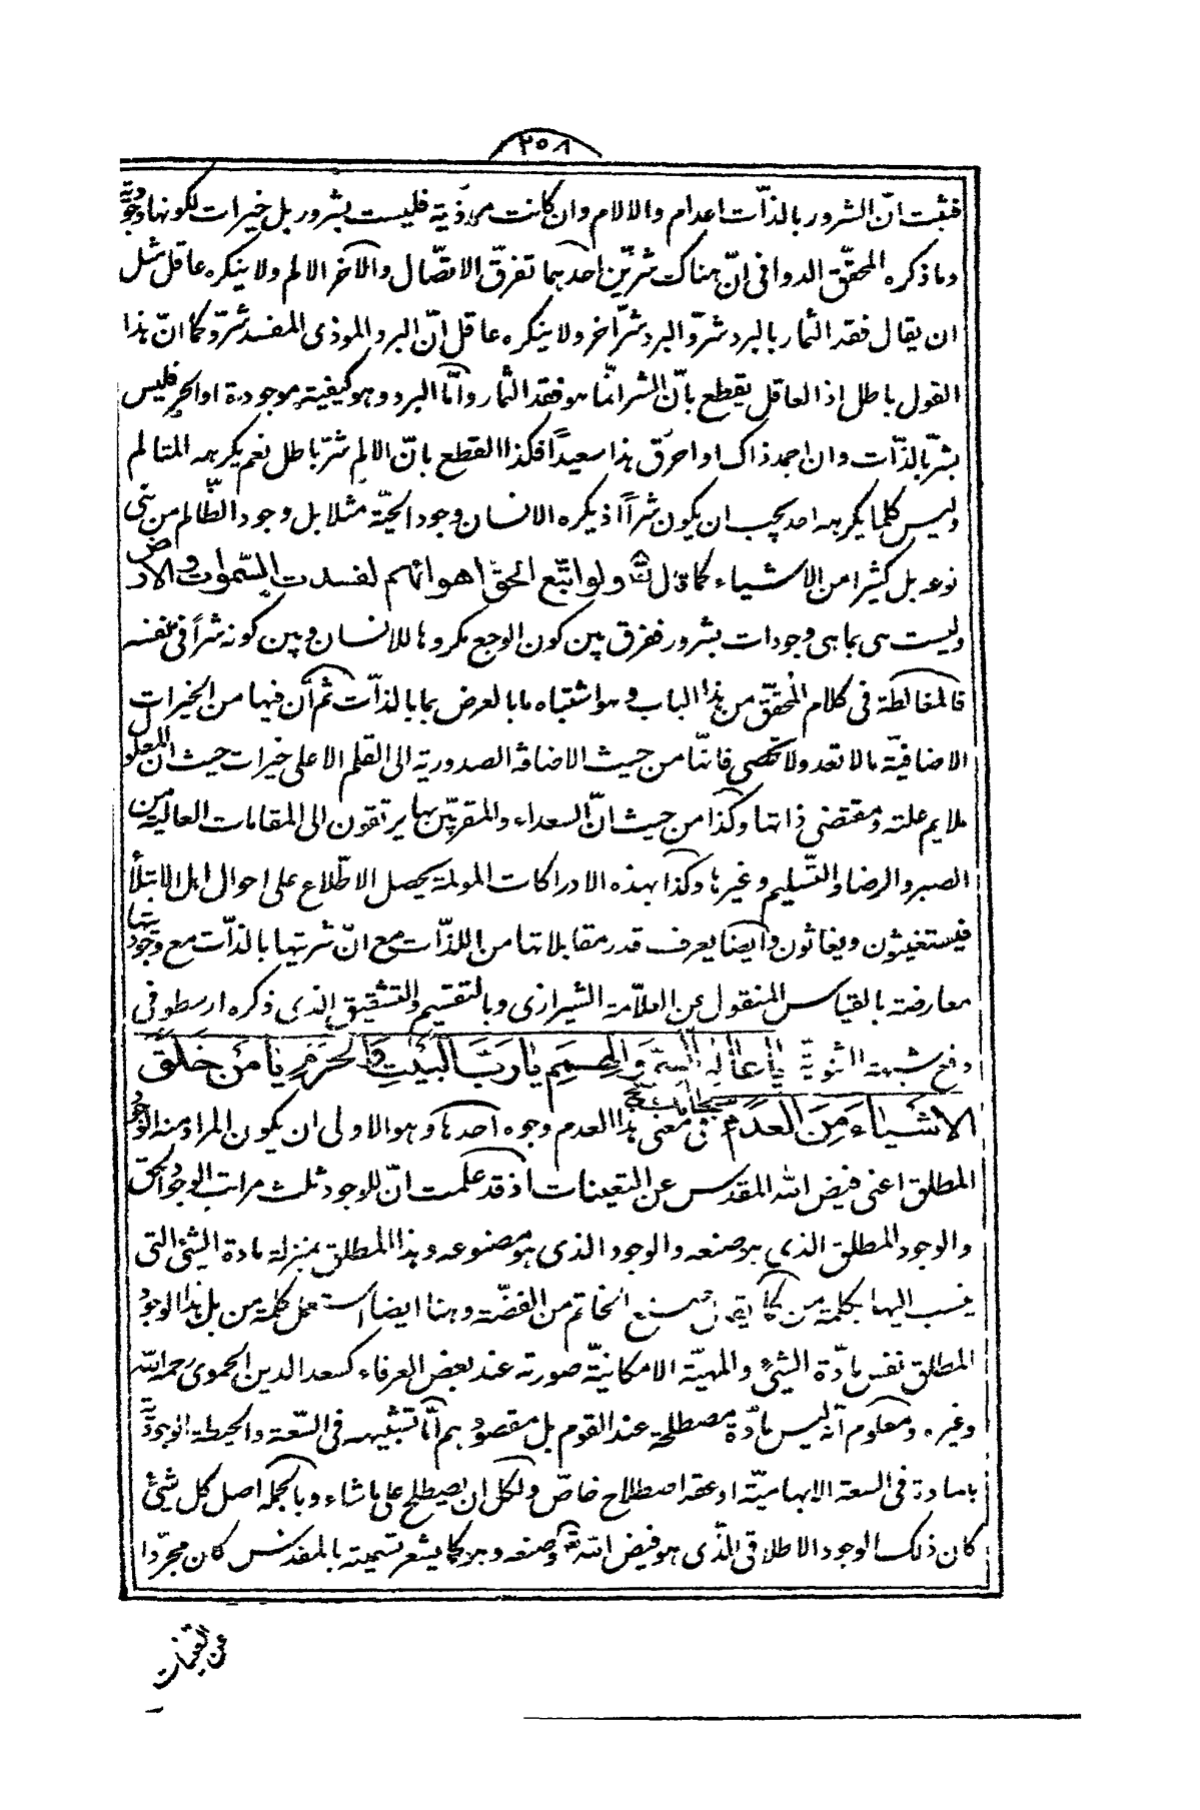 ٢٥٨
فثبت انّ الشرور بالذّات اعدام والالام وان كانت موذية فليست بشرور بل خيرات لكونها وجوديّة
وما ذكره المحقّق الدوانى انّ هناك شرّين احدهما تفرّق الاتصّال والآخر الالم ولا ينكره عاقل مثل
ان يقال فقد الثمار بالبرد شرّ والبرد شرّ اخر ولا ينكره عاقل انّ البرد الموذى المفسد شرّ وكما انّ هذا
القول باطل اذ العاقل يقطع بانّ الشر انّما هو فقد الثمار وامّا البرد وهو كيفية موجودة او الحر فليس
بشرّ بالذّات وان اجمد ذاك او احرق هذا سعيداً فكذا القطع بانّ الالم شرّ باطل نعم يكرهه المتالم
وليس كلما يكرهه احد يجب ان يكون شرّاً اذ يكره الانسان وجود الحيّة مثلا بل وجود الظّالم من بنى
نوعه بل كثيرا من الاشياء كما قال تعالى ولو اتّبع الحقّ اهوائهم لفسدت السّموات والارض
وليست هى بما هى وجودات بشرور ففرق بين كون الوجع مكروها للانسان وبين كونه شرّاً فى نفسه
فالمغالطة فى كلام المحقّق من هذا الباب وهو اشتباه ما بالعرض بما بالذّات ثم أن فيها من الخيرات
الاضافيّة ما لا تعد ولا تحصى فانّها من حيث الاضافة الصدورية الى القلم الاعلى خيرات حيث انّ المعلول
ملايم علته ومقتضى ذاتها وكذا من حيث انّ السعداء والمقربين بها يرتقون الى المقامات العالية من
الصبر والرضا والتّسليم وغيرها وكذا بهذه الادراكات المولمة يحصل الاطّلاع على احوال اهل الابتلاء
فيستغيثون ويغاثون وأيضا يعرف قدر مقابلاتها من اللذّات مع انّ شريتها بالذّات مع وجوديتها
معارضة بالقياس المنقول عن العلاّمة الشيرازى وبالتقسيم والتشقيق الذى ذكره ارسطو فى
دفع شبهة الثنويّة يا عالم السّرّ والهمم يا ربّ البيت والحرم يا من خلق
الاشياء من العدم فى معنى هذا العدم وجوه احدها وهو الاولى ان يكون المراد منه الوجود
المطلق اعنى فيض الله المقدس عن التعينات اذ قد علمت انّ للوجود ثلث مراتب الوجود الحق
والوجود المطلق الذى هو صنعه والوجود الذى هو مصنوعه وهذا المطلق بمنزلة مادة الشئ التى
ينسب اليها بكلمة من كما يقال صنع الخاتم من الفضّة وهنا ايضا استعمل كلمة من بل هذا الوجود
المطلق نفس مادّة الشئ والمهيّة الامكانيّة صورته عند بعض العرفاء كسعد الدين الحموى رحمه الله
وغيره ومعلوم انّه ليس مادّة مصطلحة عند القوم بل مقصودهم امّا تشبيهه فى السّعة والحيطة الوجوديّة
بالمادة فى السعة الابهاميّة او عقد اصطلاح خاصّ ولكل ان يصطلح على ما شاء وبالجملة اصل كل شئ
كان ذلك الوجود الاطلاقى الذّى هو فيض الله تعالى وصنعه وهو كما يشعر تسميته بالمقدس كان مجرّدا
عن التعينات